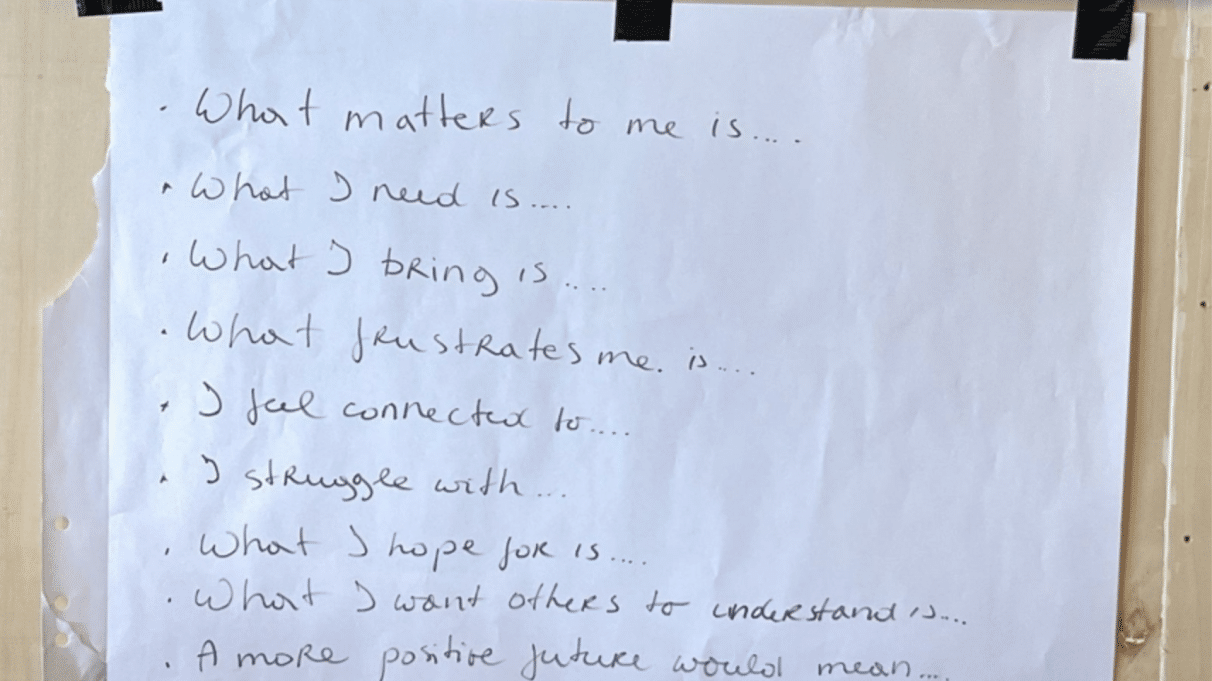 · What matters to me is....
· What I need is....
· What I bring is....
· What frustrates me. is....
· I feel connected to....
· I struggle with...
· What I hope for is....
· What I want others to understand is...
· A more positive future would mean....